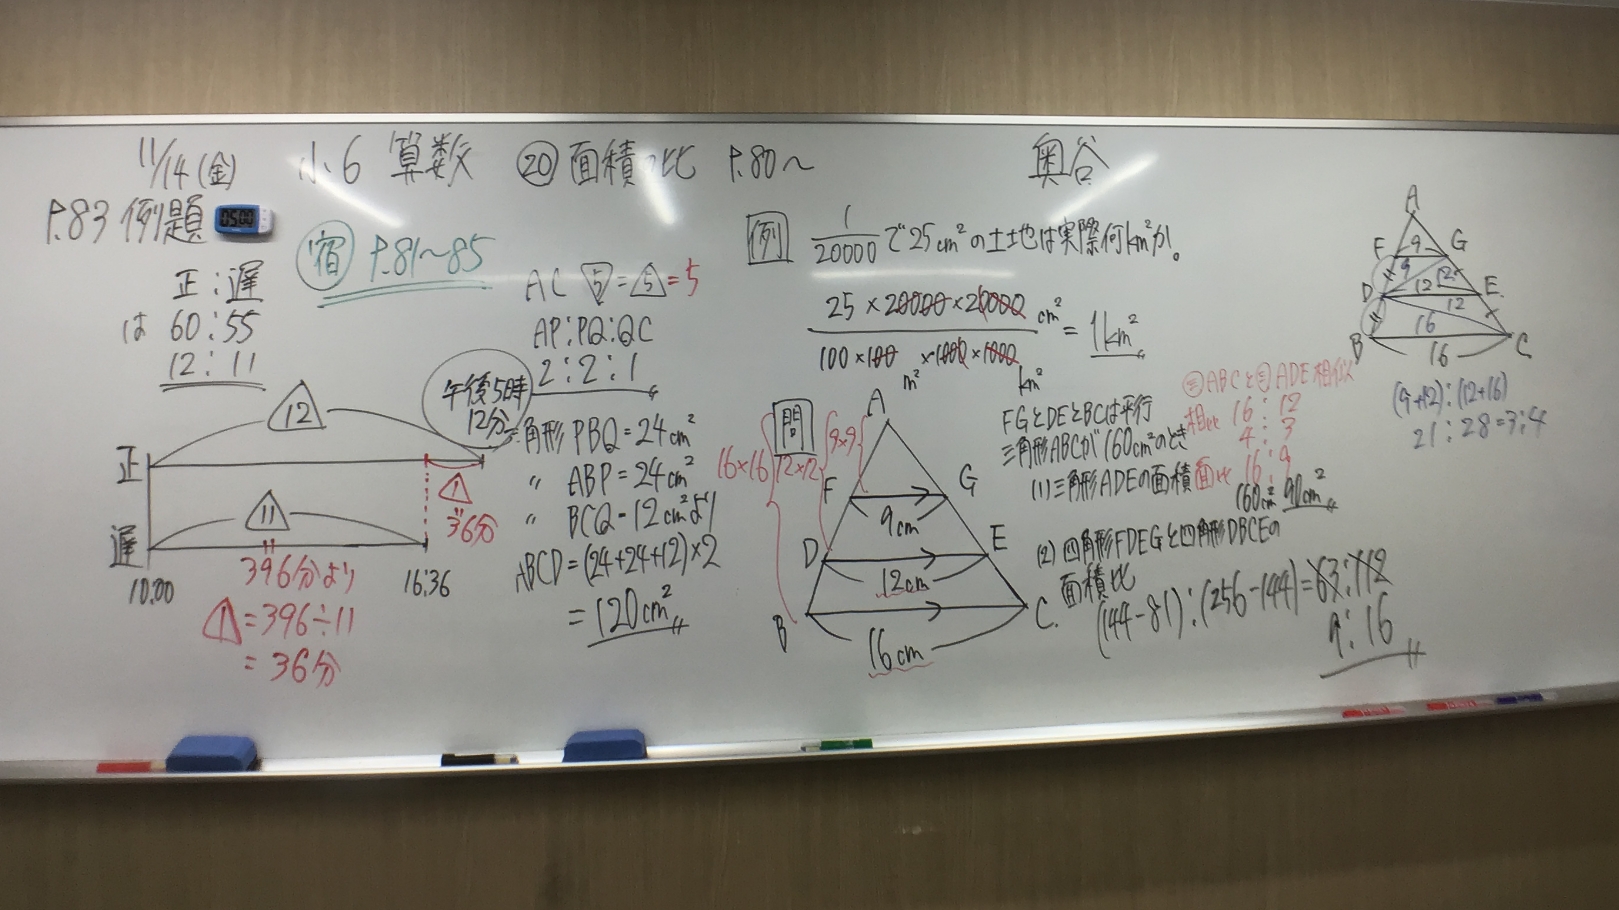 11/14(金) 小6 算数 ⑳面積比 P.80～ 奥谷
P.83 例題
05:00
宿 P.81～85
正:遅
は 60:55
12:11
12
正
1
36分
11
遅
10:00
396分より
16:36
1=396÷11
=36分
午後5時
12分
AC 5=5=5
AP:PQ:QC
2:2:1
三角形 PBQ=24cm²
〃 ABP=24cm²
〃 BCQ=12cm²より
ABCD=(24+24+12)×2
=120cm²
例 1/20000で25cm²の土地は実際何km²か。
25×20000×20000 cm²
100×100 ×1000×1000
m² km²
=1km²
問
16×16
12×12
9×9
A
F G
9cm
D E
12cm
B C
16cm
FGとDEとBCは平行
三角形ABCが160cm²のとき
(1)三角形ADEの面積
三ABCと三ADE相似
相比 16:12
4:3
面比 16:9
160cm² 90cm²
(2)四角形FDEGと四角形DBCEの
面積比
(144-81):(256-144)=63:112
9:16
A
F 9 G
9 12
D 12 E
12
16
B 16 C
(9+12):(12+16)
21:28=3:4